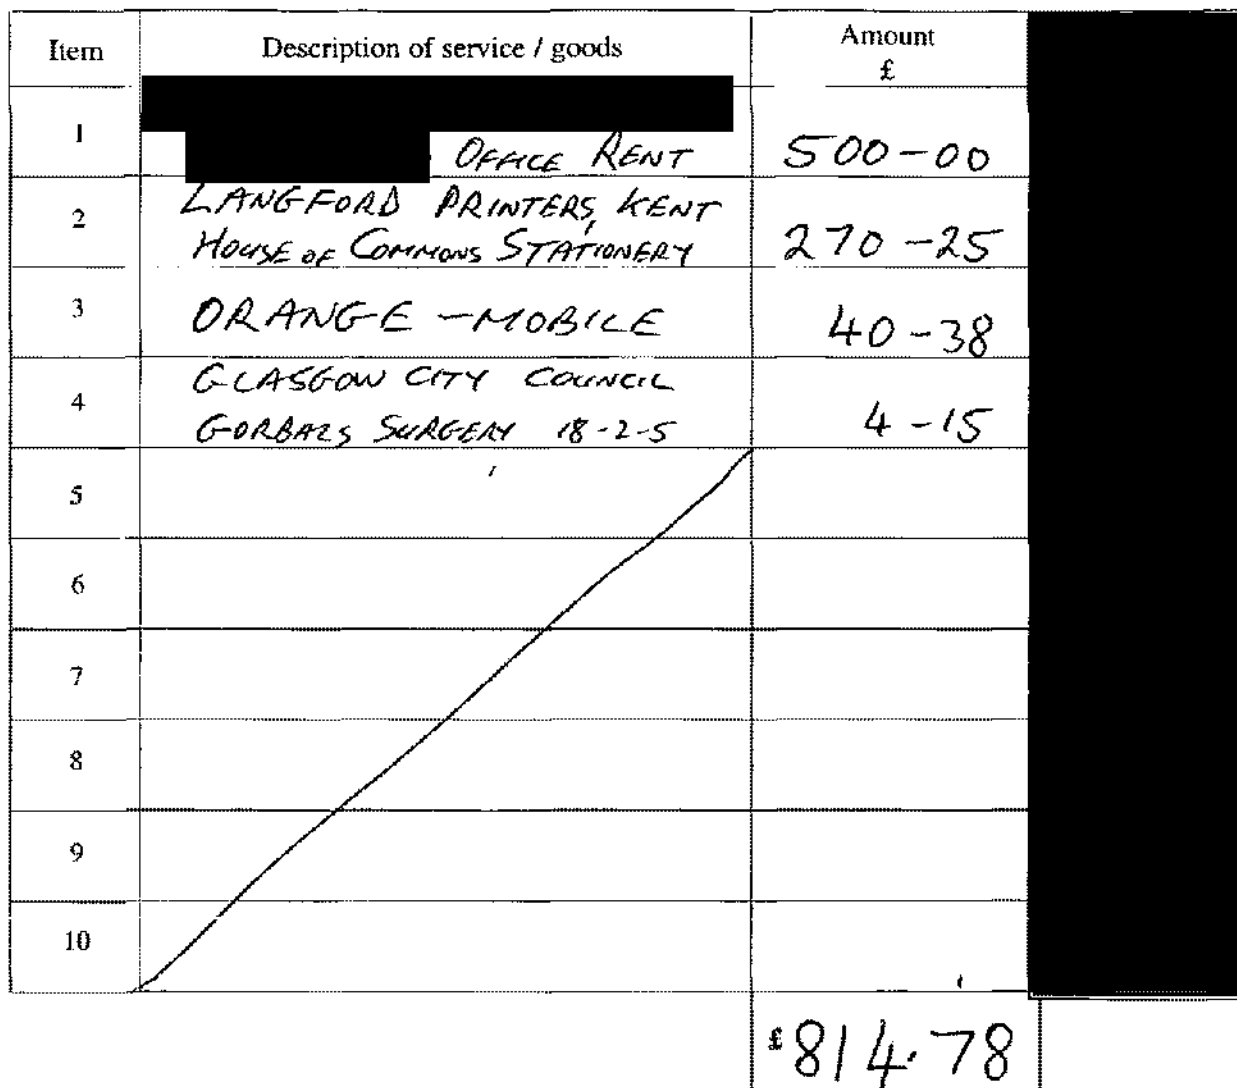 Item Description of service / goods Amount
£
1 OFFICE RENT 500-00
2 LANGFORD PRINTERS, KENT
HOUSE OF COMMONS STATIONERY 270-25
3 ORANGE - MOBILE 40-38
4 GLASGOW CITY COUNCIL
GORBALS SURGERY 18-2-5 4-15
5
6
7
8
9
10
£814.78